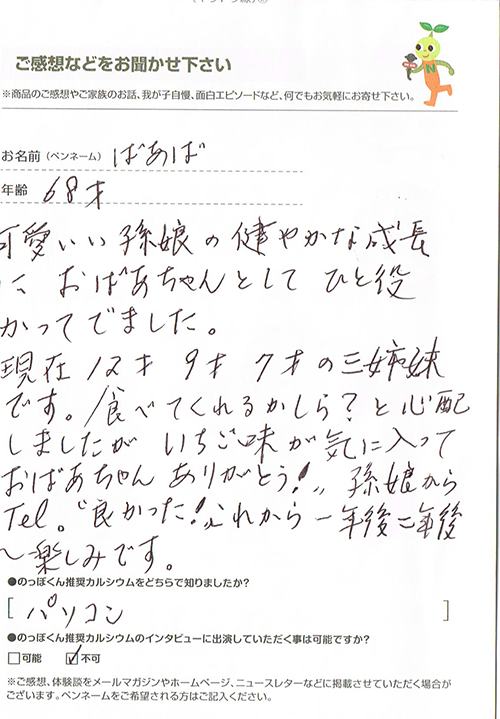 ご感想などをお聞かせ下さい
※商品のご感想やご家族のお話、我が子自慢、面白エピソードなど、何でもお気軽にお寄せ下さい。
N
お名前(ペンネーム) ばあば
年齢 68才
可愛いい孫娘の健やかな成長
に おばあちゃんとして ひと役
かってでました。
現在 12才 9才 7才の三姉妹
です。食べてくれるかしら?と心配
しましたが いちご味が気に入って
おばあちゃん ありがとう!〟孫娘から
Tel。〝良かった!〟これから一年後二年後
〜楽しみです。
●のっぽくん推奨カルシウムをどちらで知りましたか?
[ パソコン ]
●のっぽくん推奨カルシウムのインタビューに出演していただく事は可能ですか?
□可能 ☑不可
※ご感想、体験談をメールマガジンやホームページ、ニュースレターなどに掲載させていただく場合が
ございます。ペンネームをご希望される方はご記入ください。